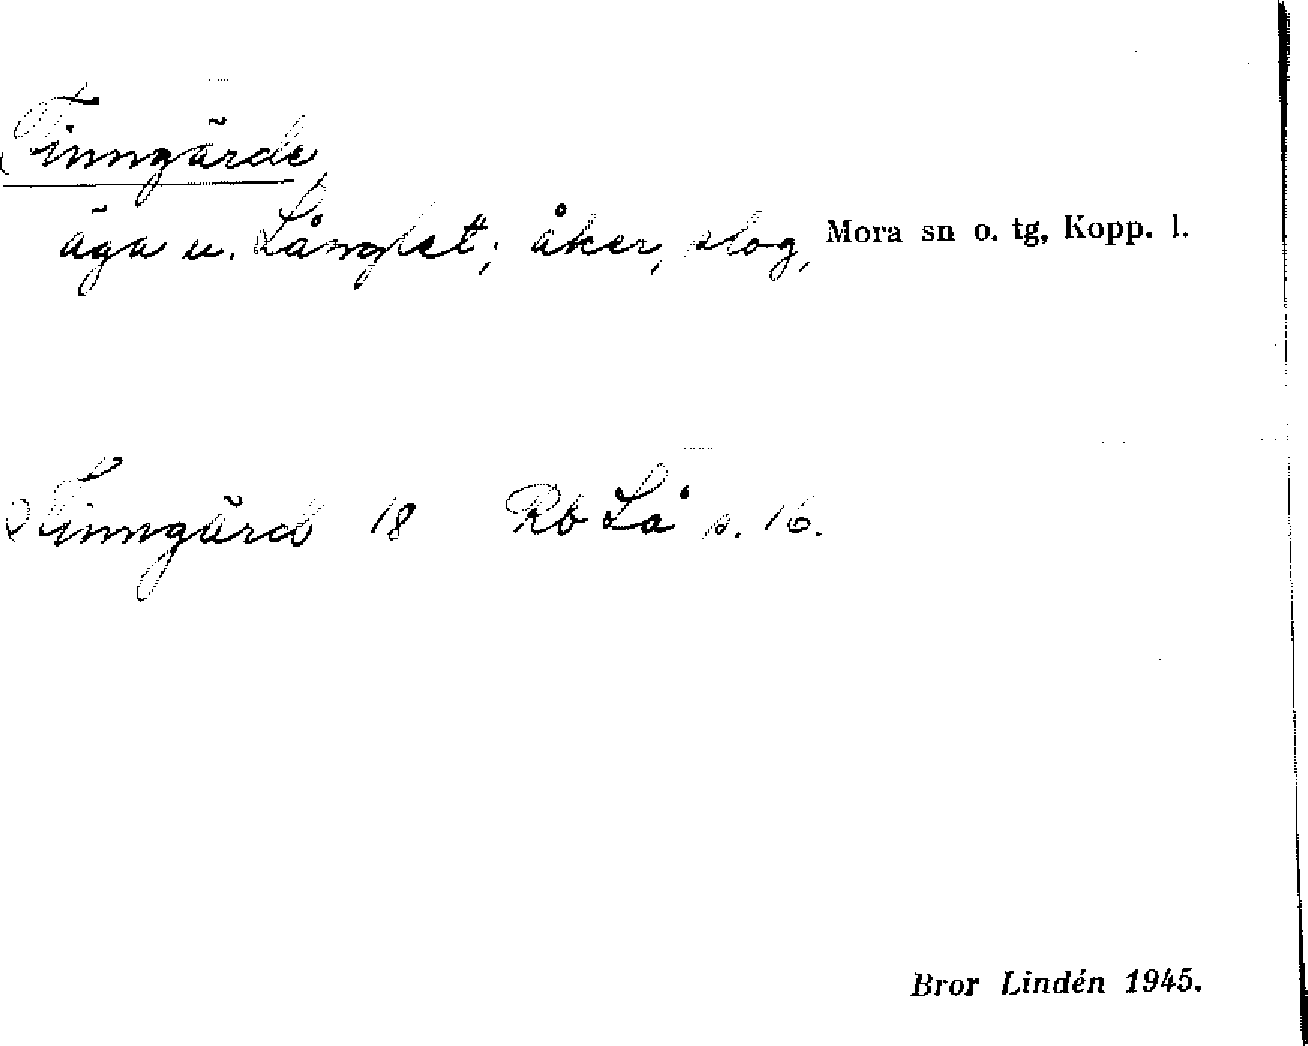 Finngärde
äga u. Långlet; åker, slog, Mora sn o. tg, Kopp. l.
Finngärd 18 Rb Lå s. 16.
Bror Lindén 1945.